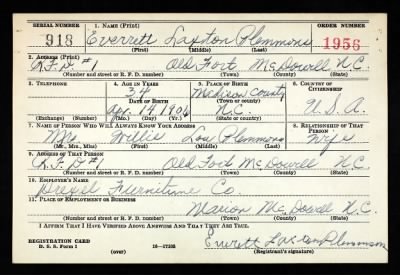 SERIAL NUMBER 1. NAME (Print) ORDER NUMBER
918 Everrett Laxton Plemmons 1956
(First) (Middle) (Last)
2. ADDRESS (Print)
R.F.D #1 Old Fort McDowell N.C.
(Number and street or R. F. D. number) (Town) (County) (State)
3. TELEPHONE 4. AGE IN YEARS 5. PLACE OF BIRTH 6. COUNTRY OF CITIZENSHIP
34 Madison County
DATE OF BIRTH (Town or county)
Apr. 14 1906 N.C. U.S.A.
(Exchange) (Number) (Mo.) (Day) (Yr.) (State or country)
7. NAME OF PERSON WHO WILL ALWAYS KNOW YOUR ADDRESS 8. RELATIONSHIP OF THAT PERSON
Willie Lou Plemmons Wife
(Mr., Mrs., Miss) (First) (Middle) (Last)
9. ADDRESS OF THAT PERSON
R.F.D #1 Old Fort McDowell N.C.
(Number and street or R. F. D. number) (Town) (County) (State)
10. EMPLOYER'S NAME
Drexel Furniture Co.
11. PLACE OF EMPLOYMENT OR BUSINESS
Marion McDowell N.C.
(Number and street or R. F. D. number) (Town) (County) (State)
I AFFIRM THAT I HAVE VERIFIED ABOVE ANSWERS AND THAT THEY ARE TRUE.
REGISTRATION CARD Everrett Laxton Plemmons
D. S. S. Form 1 (over) 16—17105 (Registrant's signature)